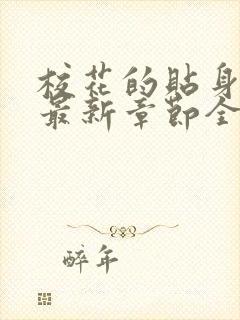 校花的贴身
最新章節全
醉年